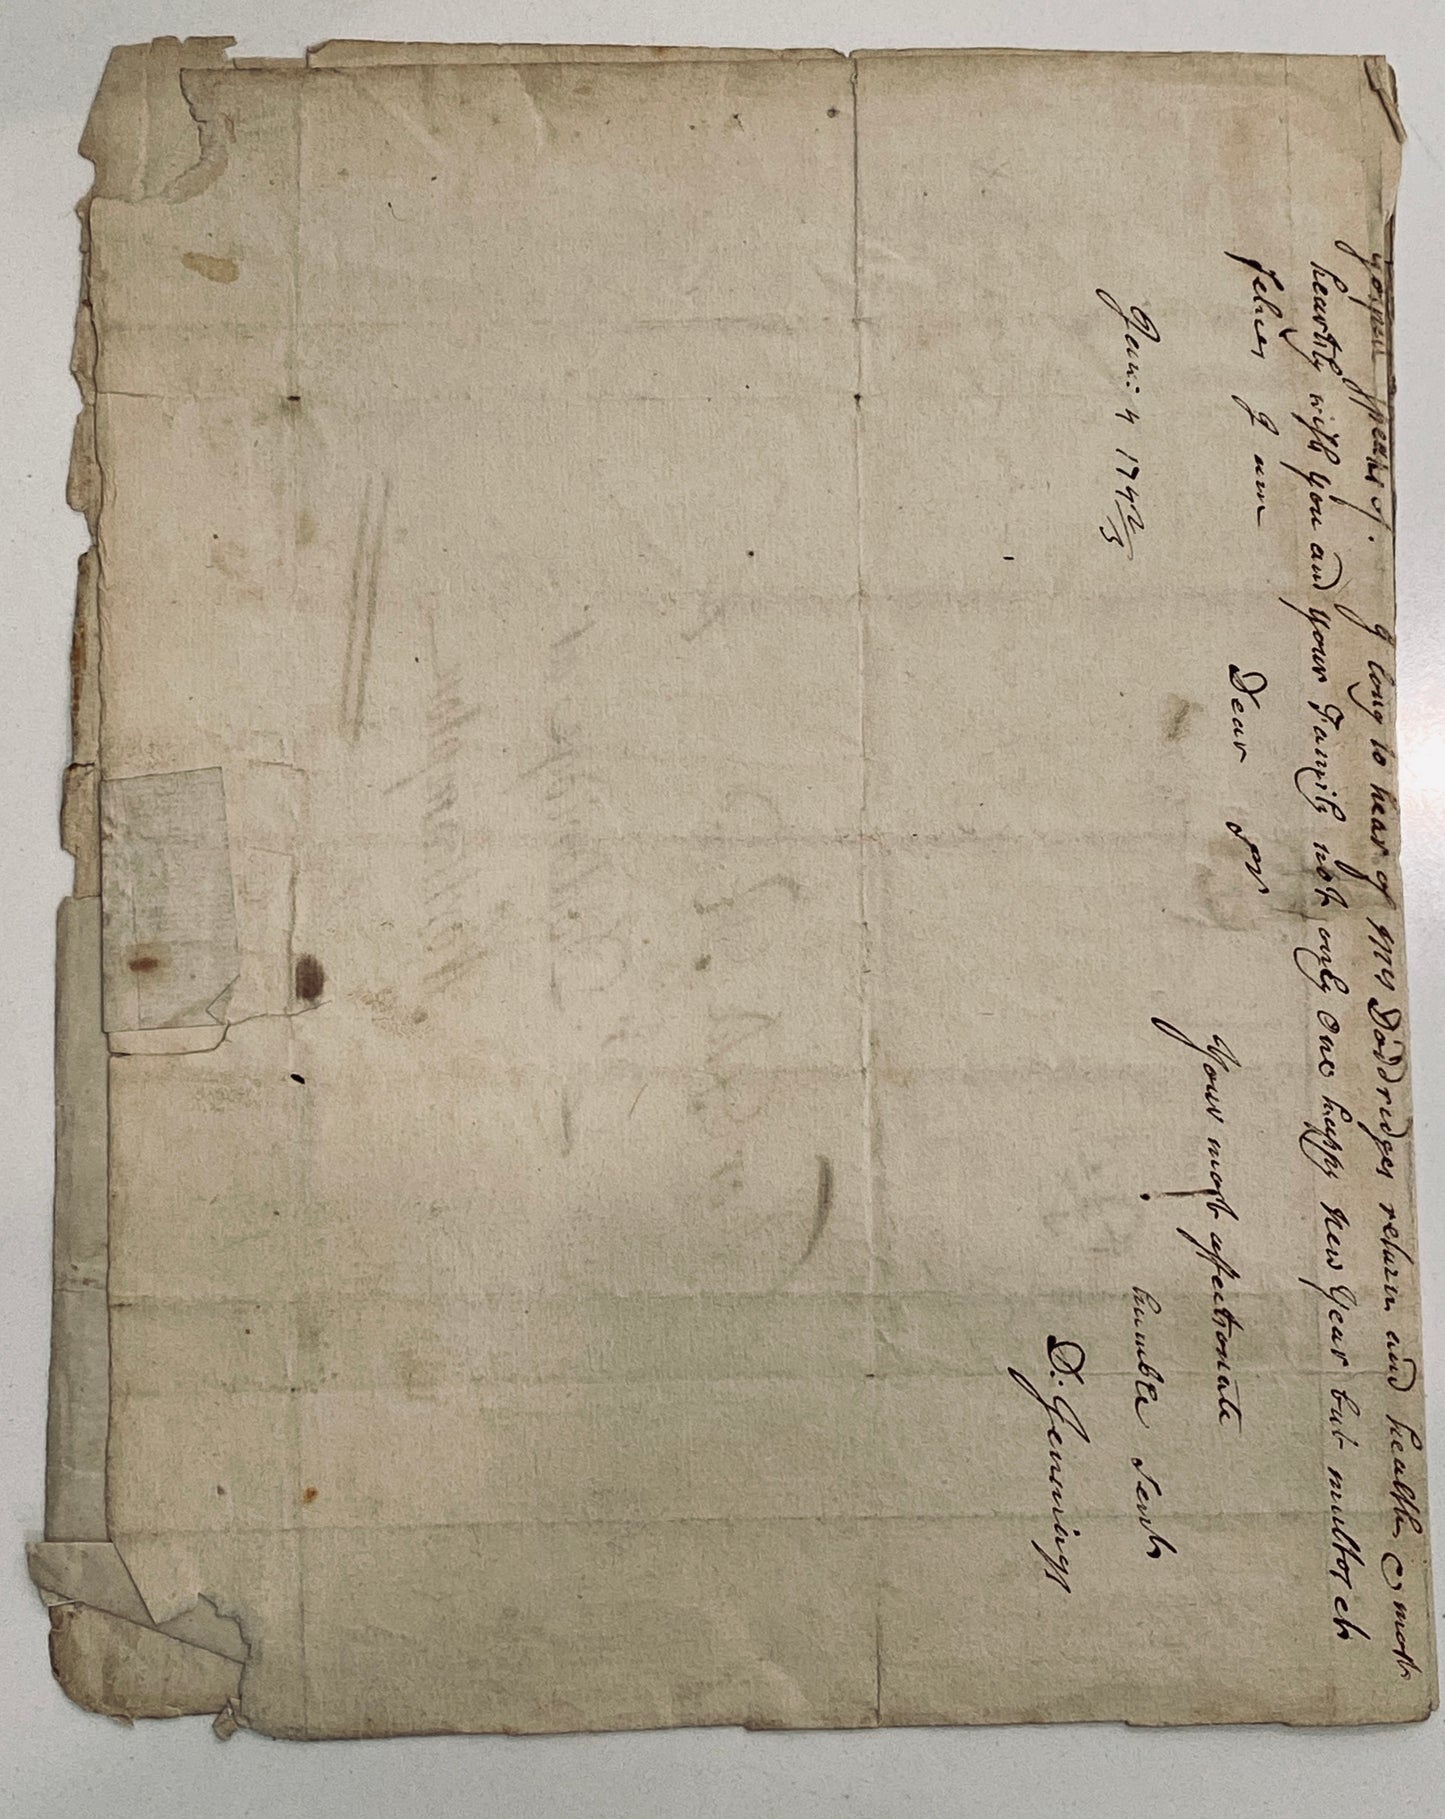 I long to hear of Mrs Doddridges return and health & most
heartily wish you and your Family not only One happy new Year but multos et
felices I am
Dear Sr
Your most affectionate
humble Servt
D: Jennings
Jan: 4 1742/3